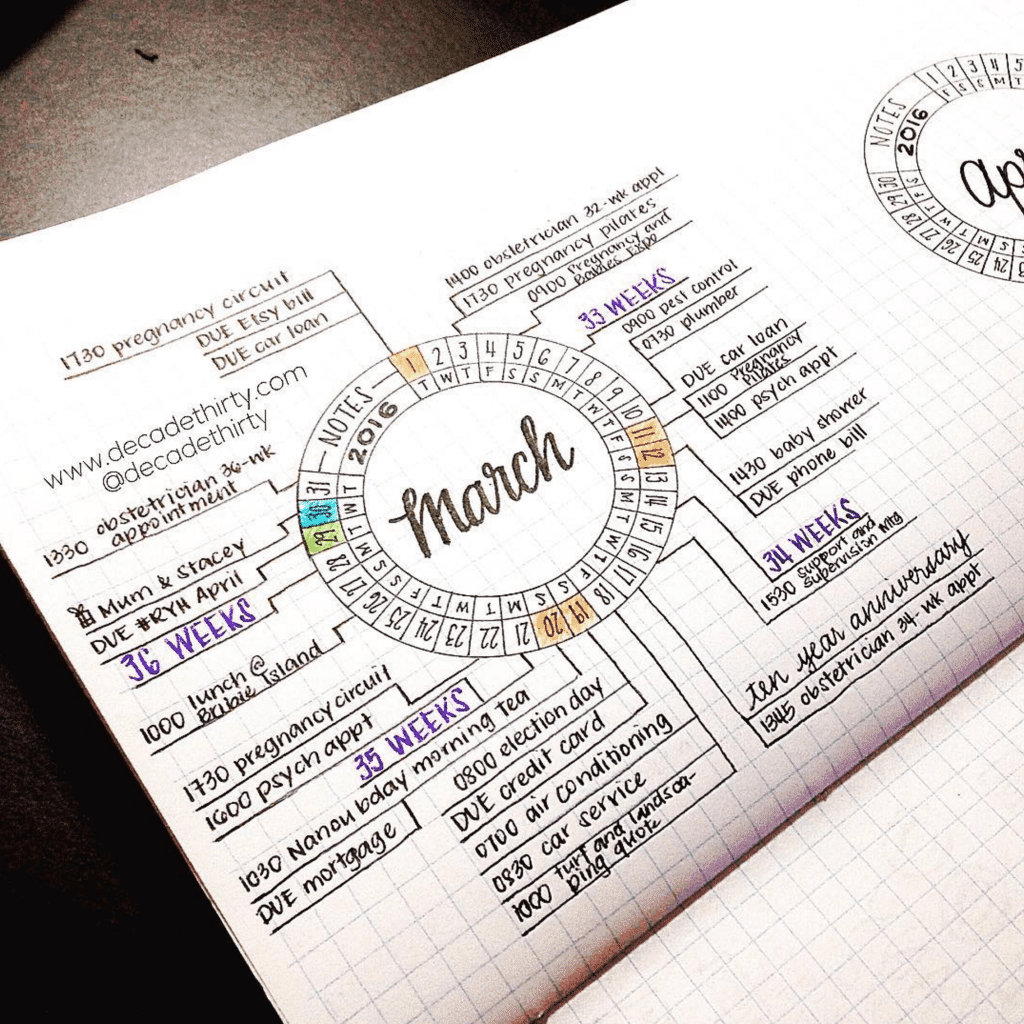 1730 pregnancy circuit
DUE Etsy bill
DUE car loan
www.decadethirty.com
@decadethirty
obstetrician 36-wk
1330 appointment
Mum & Stacey
DUE #RYH April
36 WEEKS
1000 lunch @
Bribie Island
1730 pregnancy circuit
1600 psych appt
35 WEEKS
1030 Nanou bday morning tea
DUE mortgage
0800 election day
DUE credit card
0700 air conditioning
0830 car service
1000 turf and landsca-
ping quote
1400 obstetrician 32-wk appt
1730 pregnancy pilates
0900 Pregnancy and
Babies Expo
33 WEEKS
0900 pest control
0730 plumber
DUE car loan
1100 Pregnancy
Pilates
1400 psych appt
1430 baby shower
DUE phone bill
34 WEEKS
1530 support and
supervision Mtg
ten year anniversary
1345 obstetrician 34-wk appt
NOTES
2016
1 2 3 4 5 6 7 8 9 10 11 12 13 14 15 16 17 18 19 20 21 22 23 24 25 26 27 28 29 30 31
T W T F S S M T W T F S S M T W T F S S M T W T F S S M T W T
march
NOTES
2016
1 2 3 4 5
F S S M T
apr
23 24 25 26 27 28 29 30
S S M T W T F S